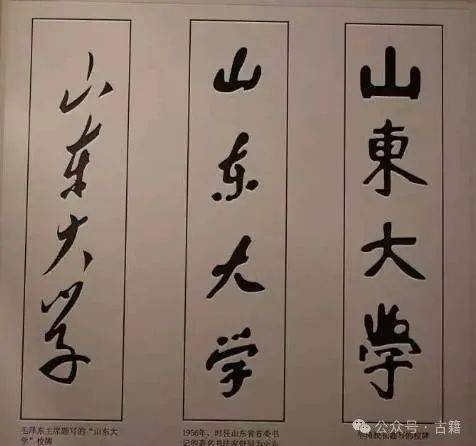 山东大学
山东大学
山東大學
毛泽东主席题写的“山东大
学”校牌
1958年，时任山东省省委书
记的著名书法家舒同为山东
题写的校牌
公众号 · 古籍